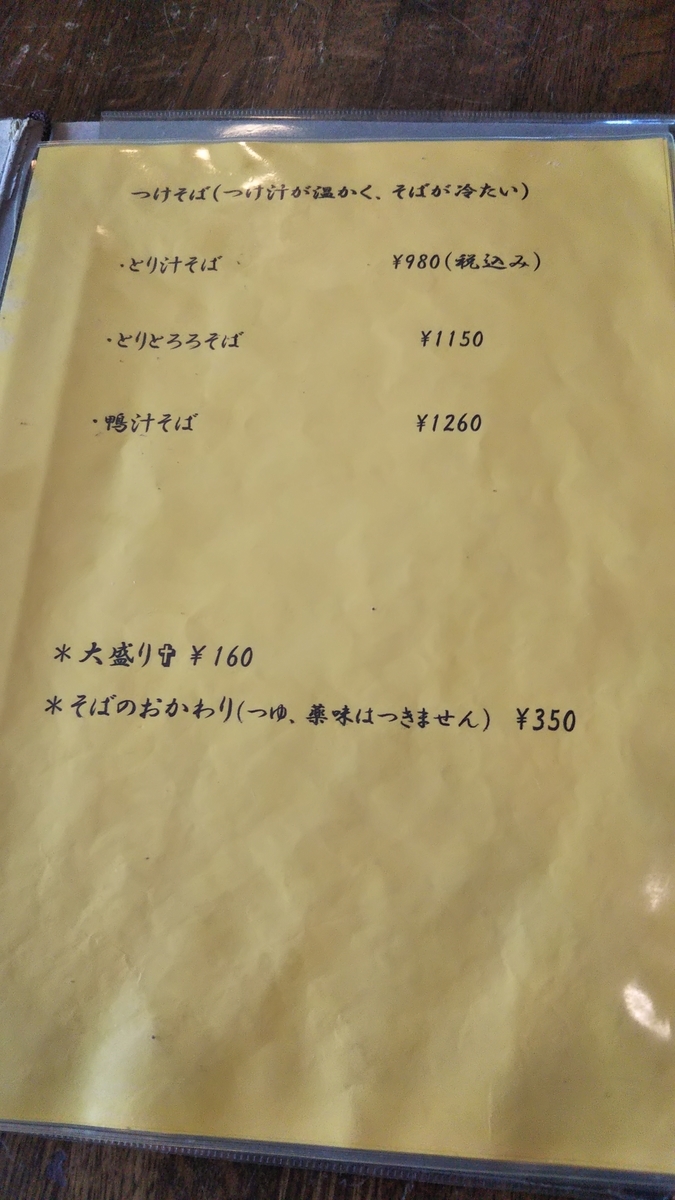 つけそば(つけ汁が温かく、そばが冷たい)
・とり汁そば ¥980(税込み)
・とりとろろそば ¥1150
・鴨汁そば ¥1260
＊大盛り✞ ¥160
＊そばのおかわり(つゆ、薬味はつきません) ¥350